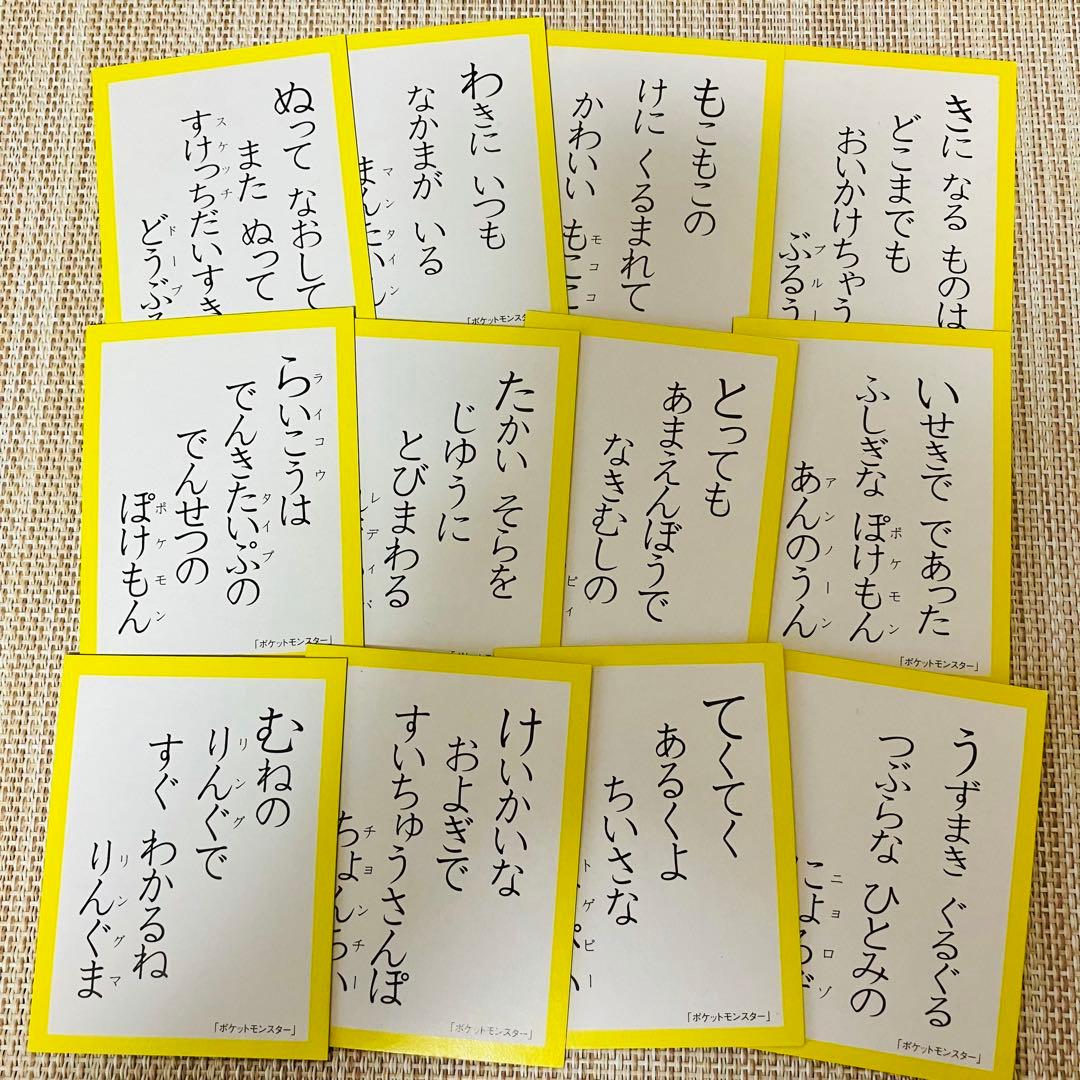 ぬって なおして
また ぬって
すけっちだいすき
スケッチ
どうぶる
ドーブ
わきに いつも
なかまが いる
まんたいん
マンタイン
「ポケットモンスタ
もこもこの
けに くるまれて
かわいい もここ
モココ
きに なる ものは
どこまでも
おいかけちゃう
ぶるう
ブルー
らいこうは
ライコウ
でんきたいぷの
タイプ
でんせつの
ぽけもん
ポケモン
「ポケットモンスター」
たかい そらを
じゆうに
とびまわる
レディバ
とっても
あまえんぼうで
なきむしの
ピィ
いせきで であった
ふしぎな ぽけもん
ポケモン
あんのうん
アンノーン
「ポケットモンスター」
むねの
りんぐで
リング
すぐ わかるね
りんぐま
リングマ
「ポケットモンスター」
けいかいな
およぎで
すいちゅうさんぽ
ちょんちい
チョンチー
「ポケットモンスター」
てくてく
あるくよ
ちいさな
トゲピー
「ポケットモンスター」
うずまき ぐるぐる
つぶらな ひとみの
にょろぞ
ニョロゾ
「ポケットモンスター」